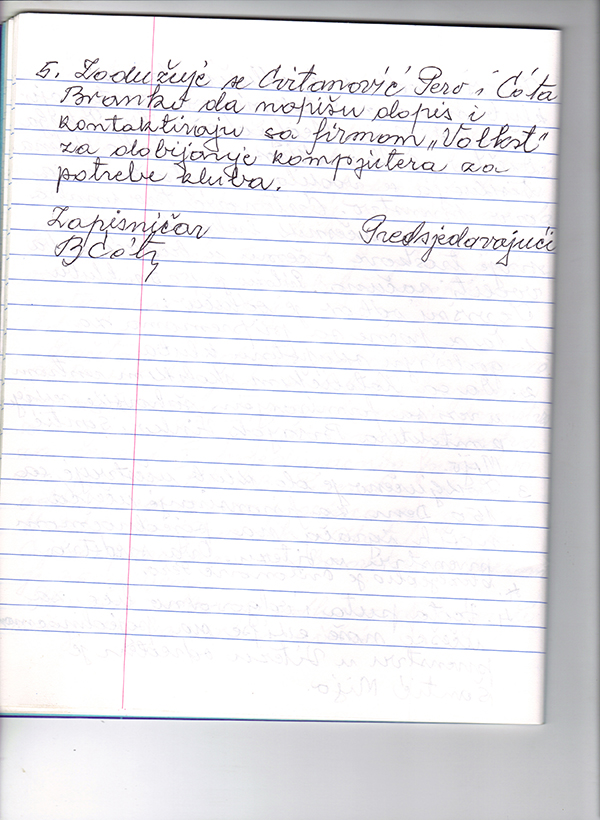 5. Zadužuje se Cvitanović Pero i Ćota
Branko da napišu dopis i
kontaktiraju sa firmom „Volkst“
za dobijanje kompjutera za
potrebe kluba.
Zapisničar Predsjedavajući
B Ćota